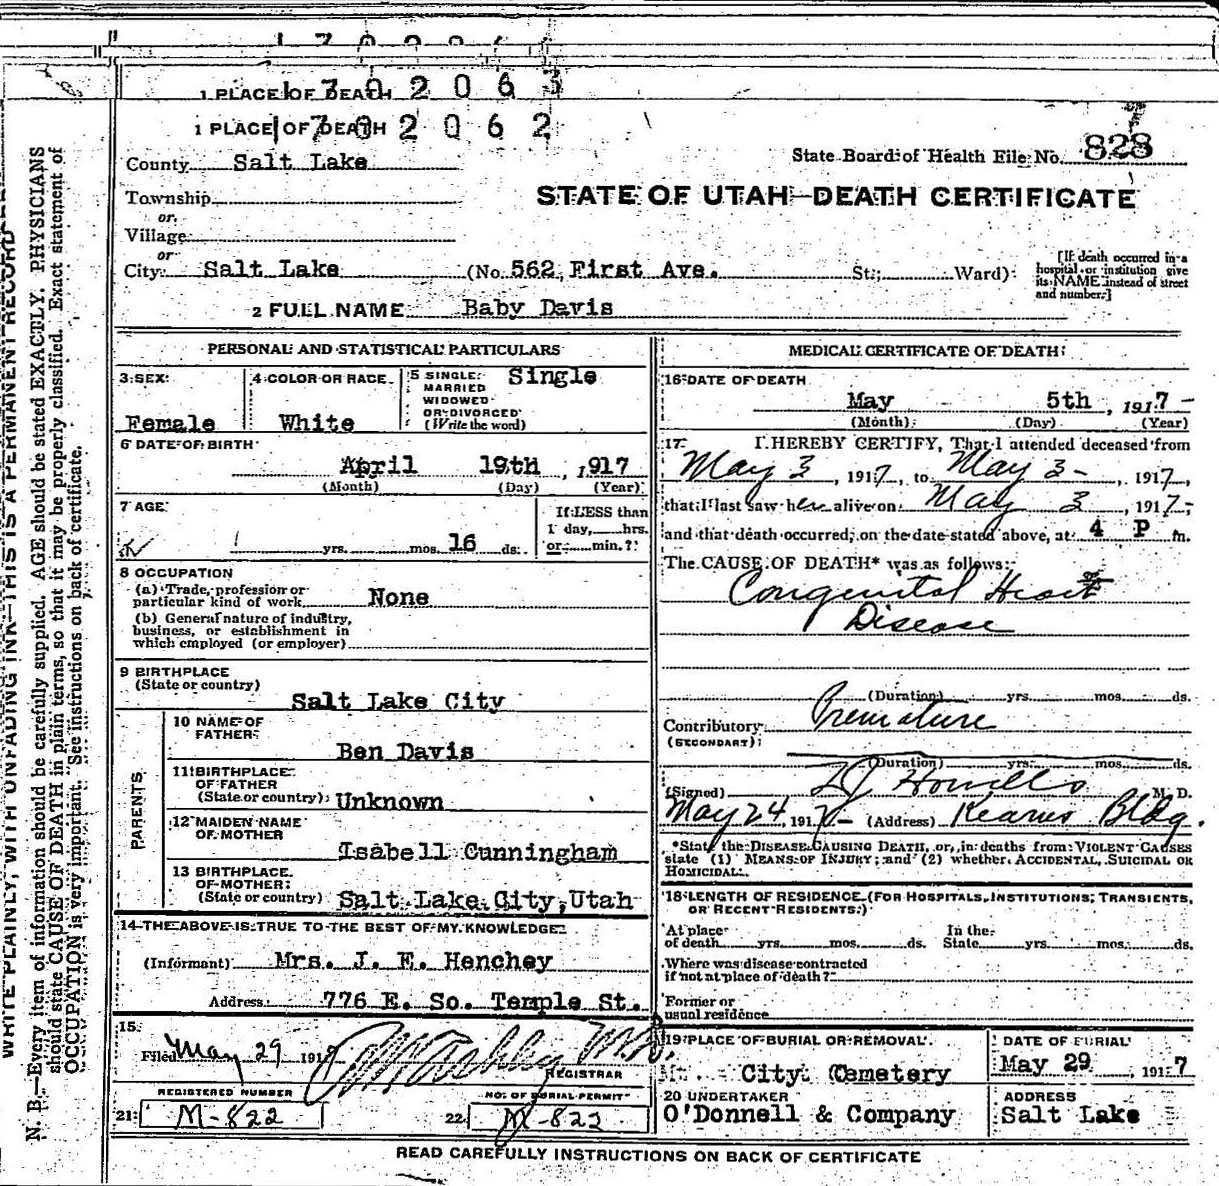 1 PLACE OF DEATH 1702063
1 PLACE OF DEATH 1702062
County Salt Lake
State Board of Health File No. 828
Township
or
Village
or
STATE OF UTAH—DEATH CERTIFICATE
City Salt Lake (No. 562 First Ave. St.; Ward)
[If death occurred in a hospital or institution give its NAME instead of street and number.]
2 FULL NAME Baby Davis
PERSONAL AND STATISTICAL PARTICULARS
3 SEX Female
4 COLOR OR RACE White
5 SINGLE MARRIED WIDOWED OR DIVORCED (Write the word) Single
6 DATE OF BIRTH
April 19th, 1917
(Month) (Day) (Year)
7 AGE
yrs. mos. 16 ds.
If LESS than 1 day, hrs. or min.?
8 OCCUPATION
(a) Trade, profession or particular kind of work None
(b) General nature of industry, business, or establishment in which employed (or employer)
9 BIRTHPLACE
(State or country)
Salt Lake City
PARENTS
10 NAME OF FATHER
Ben Davis
11 BIRTHPLACE OF FATHER
(State or country) Unknown
12 MAIDEN NAME OF MOTHER
Isabell Cunningham
13 BIRTHPLACE OF MOTHER
(State or country) Salt Lake City, Utah
14 THE ABOVE IS TRUE TO THE BEST OF MY KNOWLEDGE
(Informant) Mrs. J. E. Henchey
Address 776 E. So. Temple St.
15
Filed May 29 1917
REGISTRAR
REGISTERED NUMBER
21 M-822
NO. OF BURIAL PERMIT
22 M-822
MEDICAL CERTIFICATE OF DEATH
16 DATE OF DEATH
May 5th, 1917
(Month) (Day) (Year)
17 I HEREBY CERTIFY, That I attended deceased from
May 3, 1917, to May 3, 1917,
that I last saw her alive on May 3, 1917,
and that death occurred, on the date stated above, at 4 P m.
The CAUSE OF DEATH* was as follows:
Congenital Heart
Disease
(Duration) yrs. mos. ds.
Contributory Premature
(SECONDARY)
(Duration) yrs. mos. ds.
(Signed) Howells M. D.
May 24, 1917 (Address) Kearns Bldg.
*State the DISEASE CAUSING DEATH, or, in deaths from VIOLENT CAUSES
state (1) MEANS OF INJURY; and (2) whether ACCIDENTAL, SUICIDAL OR
HOMICIDAL.
18 LENGTH OF RESIDENCE (FOR HOSPITALS, INSTITUTIONS, TRANSIENTS,
OR RECENT RESIDENTS.)
At place of death yrs. mos. ds. In the State yrs. mos. ds.
Where was disease contracted
if not at place of death?
Former or
usual residence
19 PLACE OF BURIAL OR REMOVAL
City Cemetery
DATE OF BURIAL
May 29, 1917
20 UNDERTAKER
O'Donnell & Company
ADDRESS
Salt Lake
READ CAREFULLY INSTRUCTIONS ON BACK OF CERTIFICATE
WRITE PLAINLY, WITH UNFADING INK—THIS IS A PERMANENT RECORD
N. B.—Every item of information should be carefully supplied. AGE should be stated EXACTLY. PHYSICIANS
should state CAUSE OF DEATH in plain terms, so that it may be properly classified. Exact statement of
OCCUPATION is very important. See instructions on back of certificate.